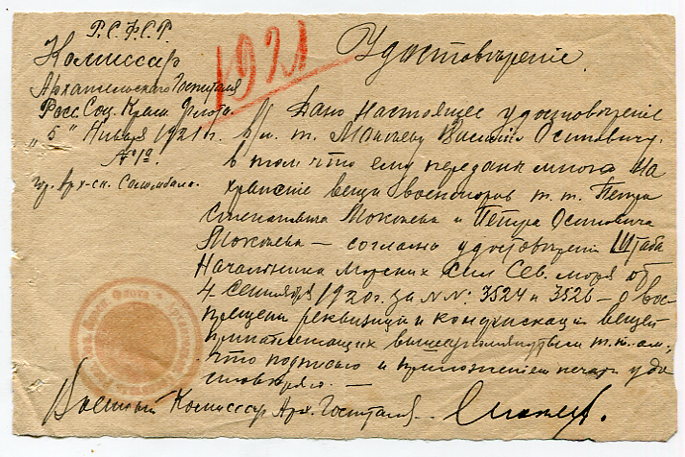 Р.С.Ф.С.Р.
Комиссар
Архангельского Госпиталя
Росс. Соц. Красн. Флота
"5" Января 1921 г.
№ 12
гор. Арх-ск. Соломбала.
1921
Удостовѣрение.
Дано настоящее удостоверение
в/м. т. Василию Осиповичу
в том что ему переданы мною на
хранение вещи военморов т.т. Петра
Степановича и Петра Осиповича
— согласно удостоверений Штаба
Начальника Морских Сил Сев. моря от
4 сентября 1920 г. за NN: 3524 и 3526 — о вос-
прещении реквизиций и конфискаций вещей
принадлежащих вышеупомянутым
что подписью и приложением печати удо-
стоверяю. —
Военный Комиссар Арх. Госпиталя.